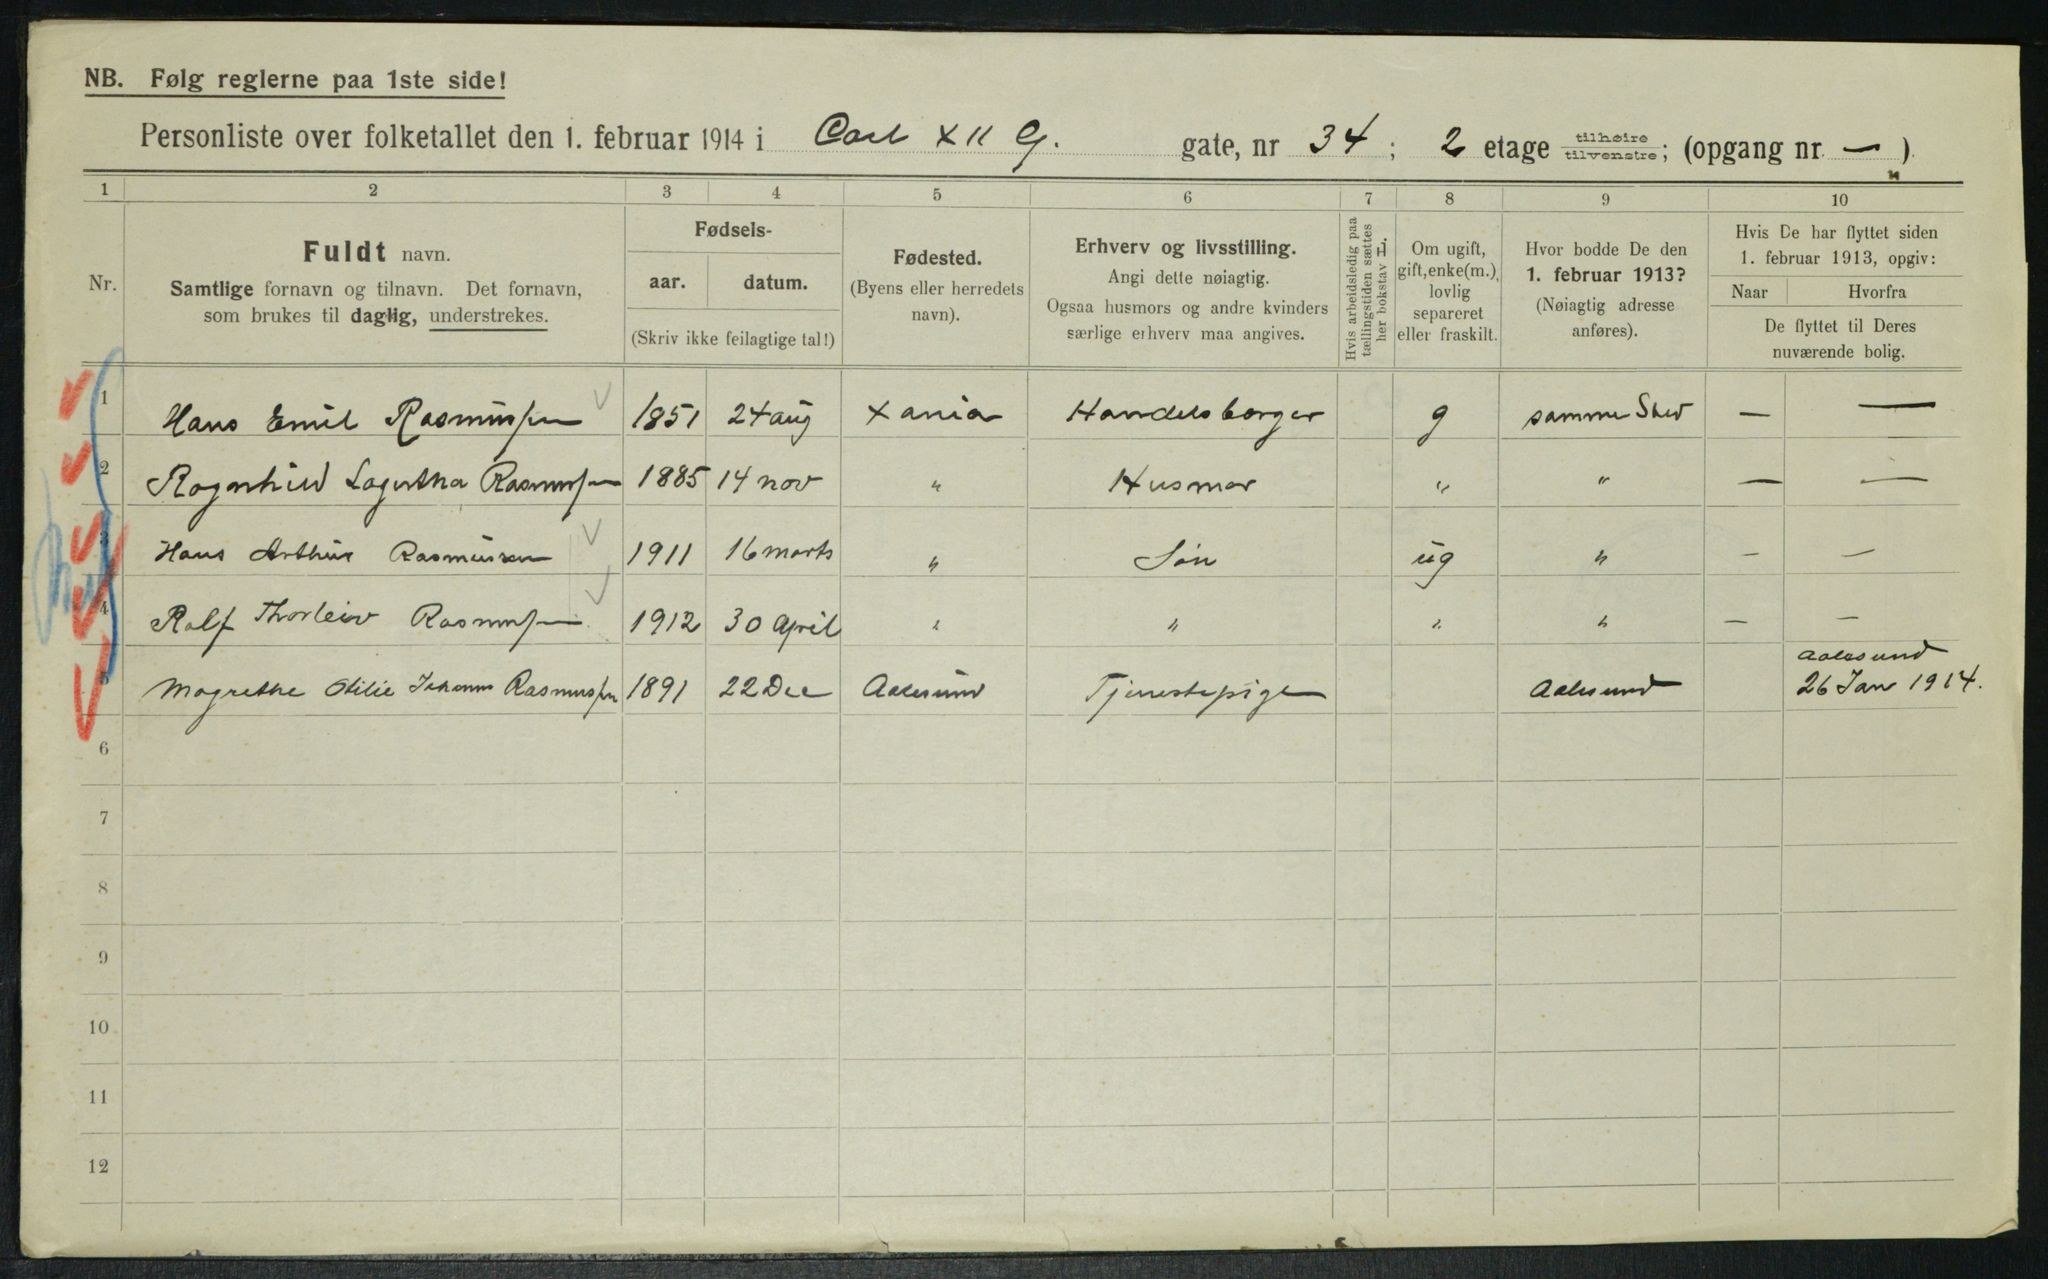 NB. Følg reglerne paa 1ste side!
Personliste over folketallet den 1. februar 1914 i Carl XII G. gate, nr 34; 2 etage tilhøire tilvenstre; (opgang nr. — )
1 2 3 4 5 6 7 8 9 10
Nr.
Fuldt navn.
Samtlige fornavn og tilnavn. Det fornavn,
som brukes til daglig, understrekes.
Fødsels-
aar. datum.
(Skriv ikke feilagtige tal!)
Fødested.
(Byens eller herredets
navn).
Erhverv og livsstilling.
Angi dette nøiagtig.
Ogsaa husmors og andre kvinders
særlige erhverv maa angives.
Hvis arbeidsledig paa
tællingstiden sættes
her bokstav L.
Om ugift,
gift, enke(m.),
lovlig
separeret
eller fraskilt.
Hvor bodde De den
1. februar 1913?
(Nøiagtig adresse
anføres).
Hvis De har flyttet siden
1. februar 1913, opgiv:
Naar Hvorfra
De flyttet til Deres
nuværende bolig.
1 Hans Emil Rasmussen 1851 24 aug Xania Handelsborger g samme Sted — —
2 Ragnhild Lagertha Rasmussen 1885 14 nov " Husmor " " — —
3 Hans Arthur Rasmussen 1911 16 marts " Søn ug " — —
4 Ralf Thorleiv Rasmussen 1912 30 April " " " " — —
5 Magrethe Otilie Johanne Rasmussen 1891 22 Dec Aalesund Tjenestepige Aalesund Aalesund
26 Jan 1914.
6
7
8
9
10
11
12